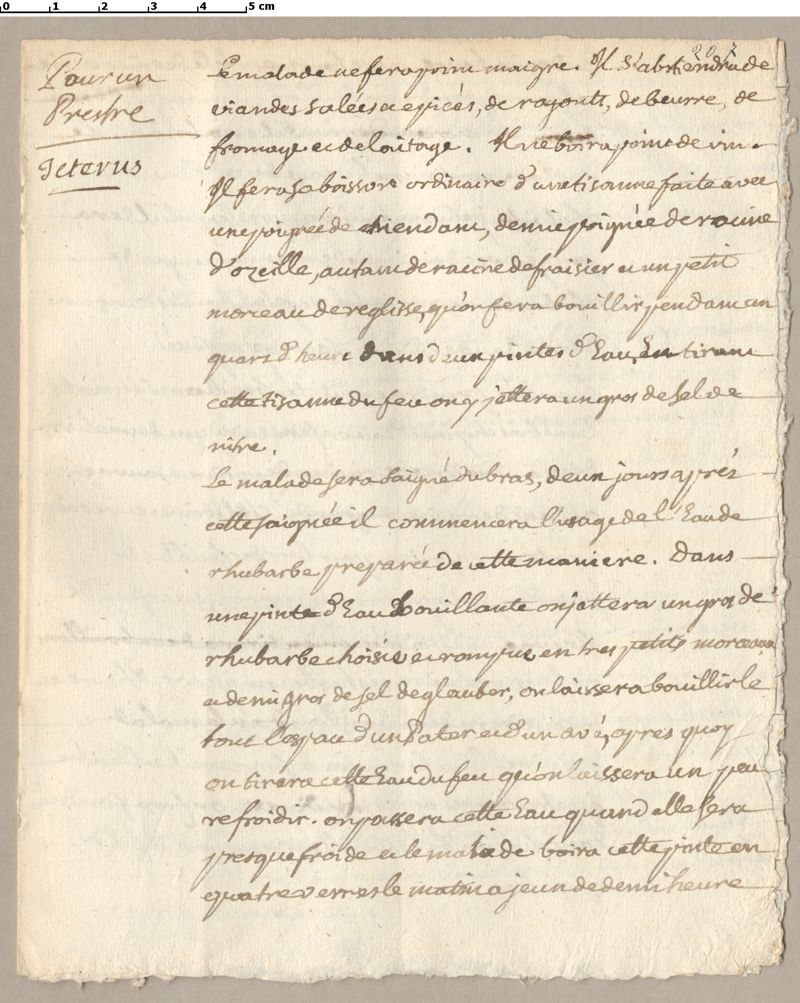 0 1 2 3 4 5 cm
207
Pour un
Prestre
Icterus
Le malade ne fera point maigre. Il s'abstiendra de
viandes salées et epicés, de ragouts, de beurre, de
fromage et de laitage. Il ne boira point de vin.
Il fera sa boisson ordinaire d'une tisanne faite avec
une poignée de chiendant, demie poignée de racine
d'ozeille, autant de racine de fraisier et un petit
morceau de reglisse, qu'on fera bouillir pendant un
quart d'heure dans deux pintes d'Eau, En tirant
cette tisanne du feu on y jettera un gros de sel de
nitre.
Le malade sera saigné du bras, deux jours aprés
cette saignée il commencera l'usage de l'Eau de
rhubarbe preparée de cette maniere. Dans
une pinte d'Eau bouillante on jettera un gros de
rhubarbe choisie et rompue en tres petits morceaux
et demi gros de sel de glauber, on laissera bouillir le
tout l'espace d'un Pater et d'un avé, apres quoy
on tirera cette Eau du feu qu'on laissera un peu
refroidir. on passera cette Eau quand elle sera
presque froide et le malade boira cette pinte en
quatre verres le matin a jeun de demi heure